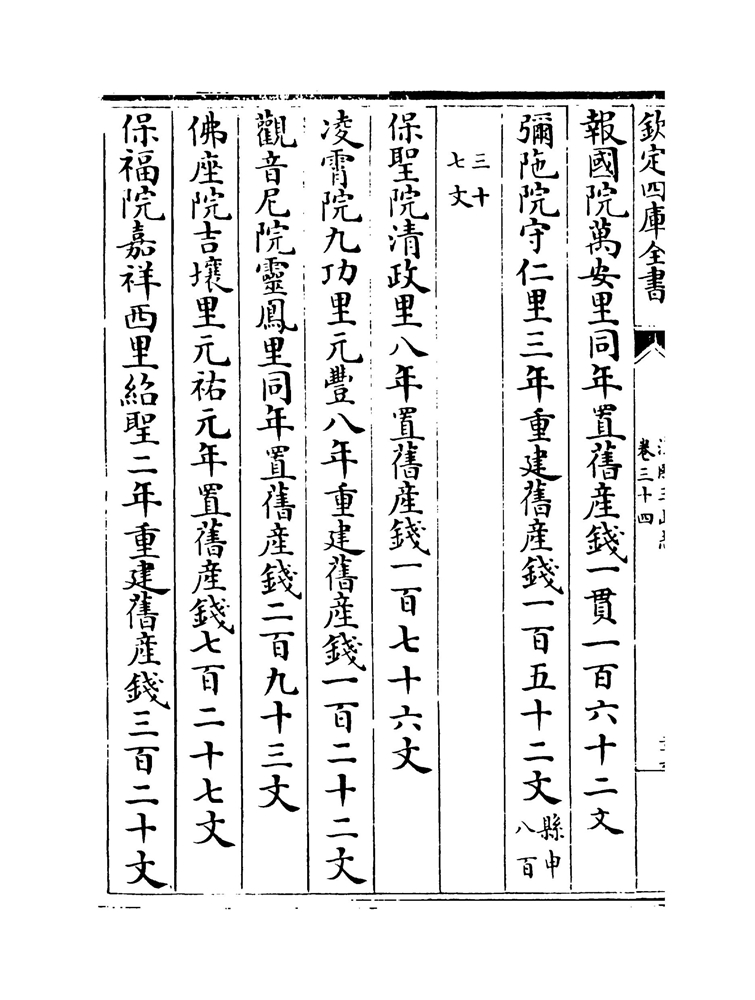 欽定四庫全書
卷三十四
報國院萬安里同年置舊產錢一貫一百六十二文
彌陁院守仁里三年重建舊產錢一百五十二文縣申八百
三十七文
保聖院清政里八年置舊產錢一百七十六文
凌霄院九功里元豐八年重建舊產錢一百二十二文
觀音尼院靈鳳里同年置舊產錢二百九十三文
佛座院吉壤里元祐元年置舊產錢七百二十七文
保福院嘉祥西里紹聖二年重建舊產錢三百二十文